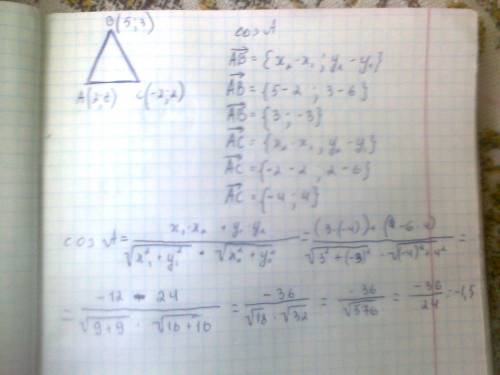 B(5;3)
A(2;6) C(-2;2)
cos A
AB = {x₂-x₁; y₂-y₁}
AB = {5-2; 3-6}
AB = {3; -3}
AC = {x₂-x₁; y₂-y₁}
AC = {-2-2; 2-6}
AC = {-4; 4}
cos A = (x₁·x₂ + y₁·y₂) / (√(x₁²+y₁²) · √(x₂²+y₂²)) = ((3·(-4)) + (-6·4)) / (√(3²+(-3)²) · √((-4)²+4²)) =
= (-12 - 24) / (√(9+9) · √(16+16)) = -36 / (√18 · √32) = -36 / √576 = -36 / 24 = -1,5